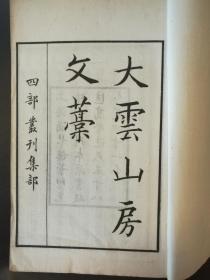 大雲山房
文藳
四部叢刊集部